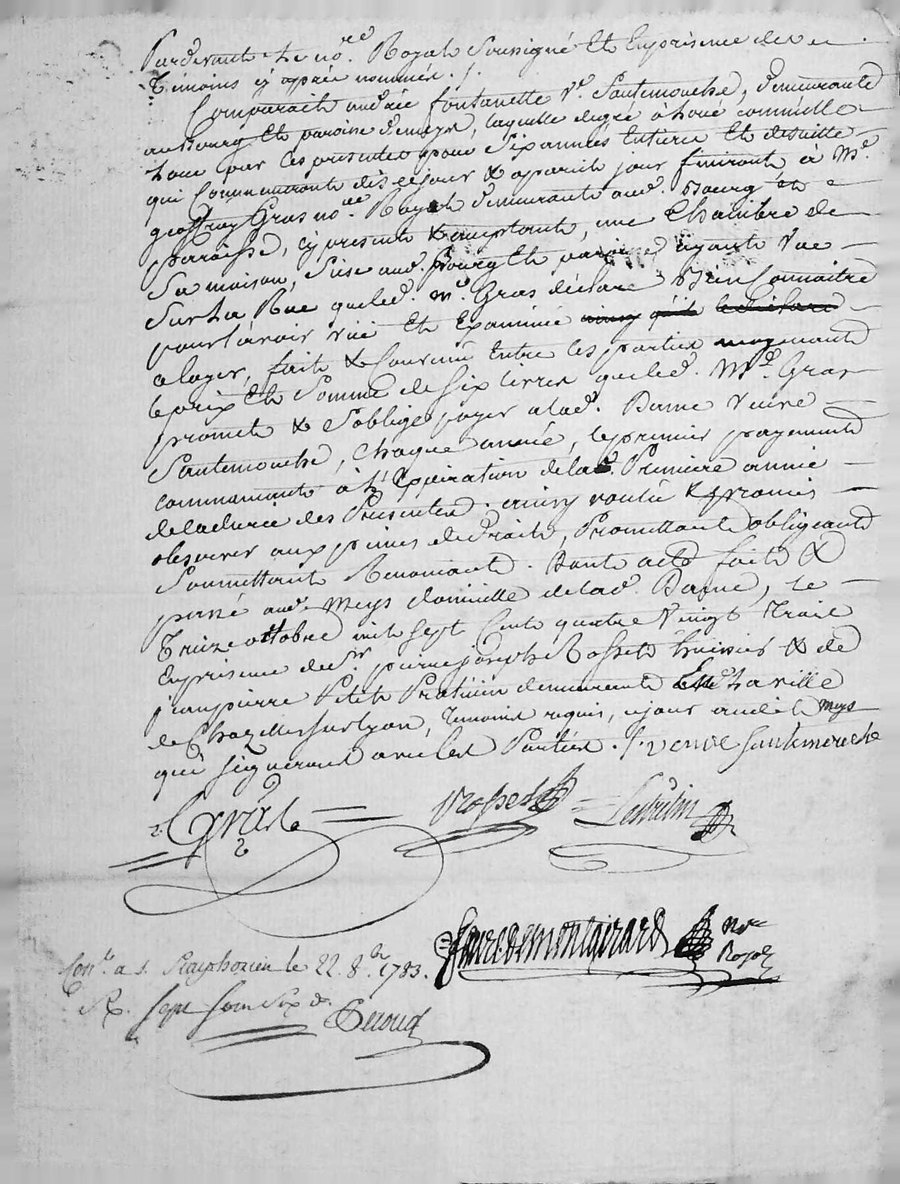 Pardevant Le no.re Royal Soussigné Et Enprésence de
Témoins cy après nommés ./.
Comparait andrée fontanelle v.e Santemouche, demeurante
au Bourg Et paroisse demeys, laquelle degré à Loué comm'elle
Loue par Ces présentes pour Six années Entières Et desuitte
qui Commenceront dès cejour & apareil jour finiront à M.e
geoffray Gras no.re Royal demeurant aud. Bourg Et
paroisse, cy présent & acceptant, une Chambre de
Sa maison, Sise aud. Bourg Et paroisse ayant Vue
Sur La Rue queled. m.e Gras déclare Bien Connaitre
pour L'avoir vüe Et Examinée
aloyer, fait & Convenu Entre les parties moyennant
le prix Et Somme de Six livres queled. M.e Gras
promet & S'oblige payer alad. Dame Veuve
Santemouche, Chaque année, le premier payement
commencant à L'Expiration delad. Première année
deladurée des Présentes. ainsy voulu & promis
observer aux peines de Droit, Promettant obligeant
Soumettant Renonçant. Dont acte fait &
passé aud. Meys domicille delad. Dame, Le
Treize octobre mil Sept Cent quatre Vingt Trois
Enprésence de S.r pierre joseph Rosset huissier & de
jeanpierre Petit Praticien demeurants La ville
de Chazelles Sur Lyon, témoins requis, meys
qui Signeront avec les Parties. veuve Santemouche
Gras
Rosset
favre de montgirard No.re
Royal
Con.lé a S. Simphorien le 22 8.bre 1783.
R. Sept Sous Six d.